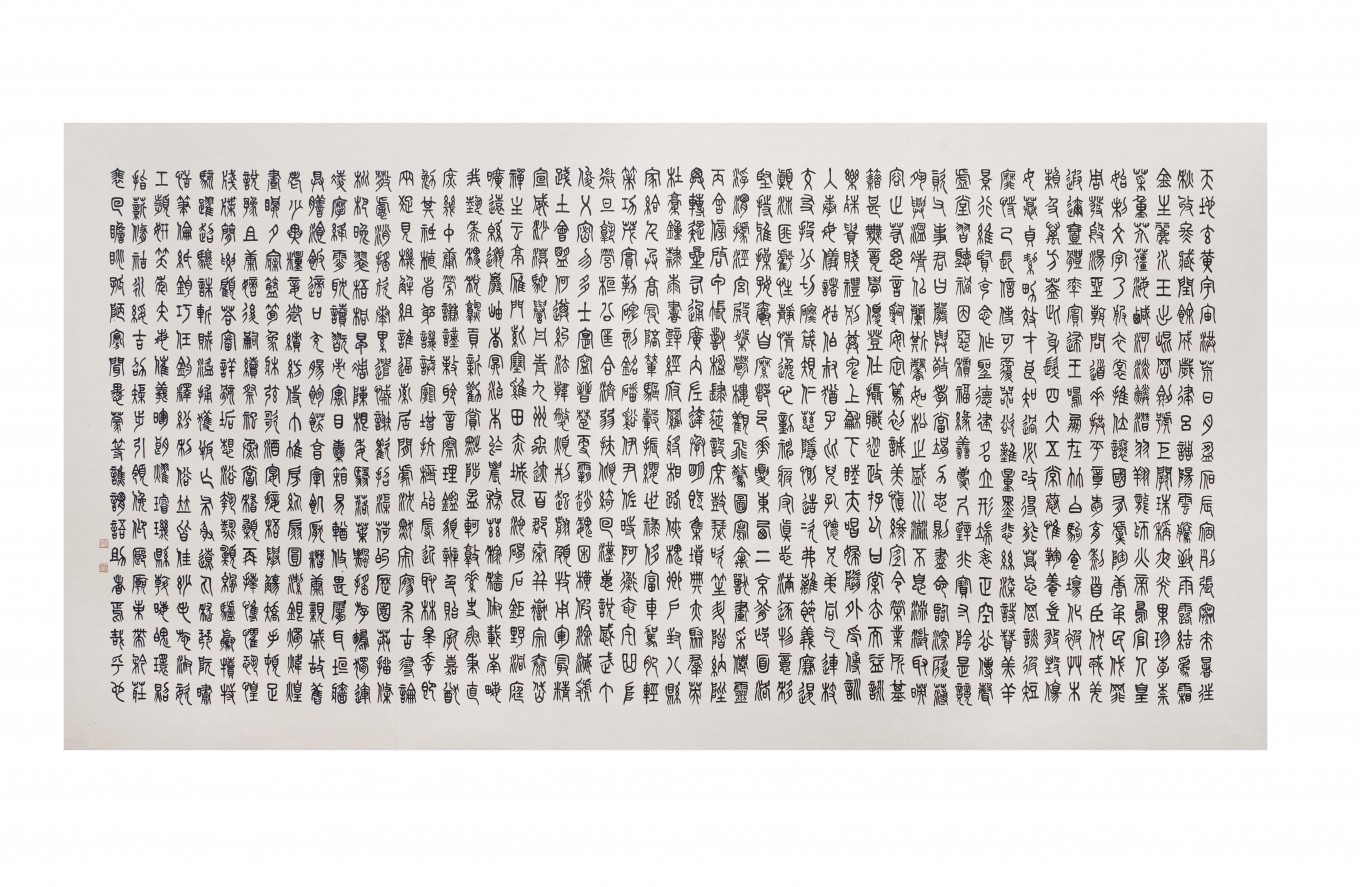 天地玄黃宇宙洪荒日月盈昃辰宿列張寒來暑往
秋收冬藏閏餘成歲律呂調陽雲騰致雨露結為霜
金生麗水玉出崑岡劍號巨闕珠稱夜光果珍李柰
菜重芥薑海鹹河淡鱗潛羽翔龍師火帝鳥官人皇
始制文字乃服衣裳推位讓國有虞陶唐弔民伐罪
周發殷湯坐朝問道垂拱平章愛育黎首臣伏戎羌
遐邇壹體率賓歸王鳴鳳在竹白駒食場化被草木
賴及萬方蓋此身髮四大五常恭惟鞠養豈敢毀傷
女慕貞潔男效才良知過必改得能莫忘罔談彼短
靡恃己長信使可覆器欲難量墨悲絲染詩讚羔羊
景行維賢克念作聖德建名立形端表正空谷傳聲
虛堂習聽禍因惡積福緣善慶尺璧非寶寸陰是競
資父事君曰嚴與敬孝當竭力忠則盡命臨深履薄
夙興溫凊似蘭斯馨如松之盛川流不息淵澄取映
容止若思言辭安定篤初誠美慎終宜令榮業所基
籍甚無竟學優登仕攝職從政存以甘棠去而益詠
樂殊貴賤禮別尊卑上和下睦夫唱婦隨外受傅訓
入奉母儀諸姑伯叔猶子比兒孔懷兄弟同氣連枝
交友投分切磨箴規仁慈隱惻造次弗離節義廉退
顛沛匪虧性靜情逸心動神疲守真志滿逐物意移
堅持雅操好爵自縻都邑華夏東西二京背邙面洛
浮渭據涇宮殿盤鬱樓觀飛驚圖寫禽獸畫彩仙靈
丙舍傍啟甲帳對楹肆筵設席鼓瑟吹笙升階納陛
弁轉疑星右通廣內左達承明既集墳典亦聚群英
杜稿鍾隸漆書壁經府羅將相路俠槐卿戶封八縣
家給千兵高冠陪輦驅轂振纓世祿侈富車駕肥輕
策功茂實勒碑刻銘磻溪伊尹佐時阿衡奄宅曲阜
微旦孰營桓公匡合濟弱扶傾綺迴漢惠說感武丁
俊乂密勿多士寔寧晉楚更霸趙魏困橫假途滅虢
踐土會盟何遵約法韓弊煩刑起翦頗牧用軍最精
宣威沙漠馳譽丹青九州禹跡百郡秦并嶽宗泰岱
禪主云亭雁門紫塞雞田赤城昆池碣石鉅野洞庭
曠遠綿邈巖岫杳冥治本於農務茲稼穡俶載南畝
我藝黍稷稅熟貢新勸賞黜陟孟軻敦素史魚秉直
庶幾中庸勞謙謹敕聆音察理鑑貌辨色貽厥嘉猷
勉其祗植省躬譏誡寵增抗極殆辱近恥林皋幸即
兩疏見機解組誰逼索居閒處沈默寂寥求古尋論
散慮逍遙欣奏累遣慼謝歡招渠荷的歷園莽抽條
枇杷晚翠梧桐早凋陳根委翳落葉飄颻游鵾獨運
凌摩絳霄耽讀翫市寓目囊箱易輶攸畏屬耳垣牆
具膳餐飯適口充腸飽飫烹宰飢厭糟糠親戚故舊
老少異糧妾御績紡侍巾帷房紈扇圓潔銀燭煒煌
晝眠夕寐藍筍象床弦歌酒宴接杯舉觴矯手頓足
悅豫且康嫡後嗣續祭祀烝嘗稽顙再拜悚懼恐惶
牋牒簡要顧答審詳骸垢想浴執熱願涼驢騾犢特
駭躍超驤誅斬賊盜捕獲叛亡布射遼丸嵇琴阮嘯
恬筆倫紙鈞巧任釣釋紛利俗並皆佳妙毛施淑姿
工顰妍笑年矢每催曦暉朗曜璇璣懸斡晦魄環照
指薪修祜永綏吉劭矩步引領俯仰廊廟束帶矜莊
徘徊瞻眺孤陋寡聞愚蒙等誚謂語助者焉哉乎也